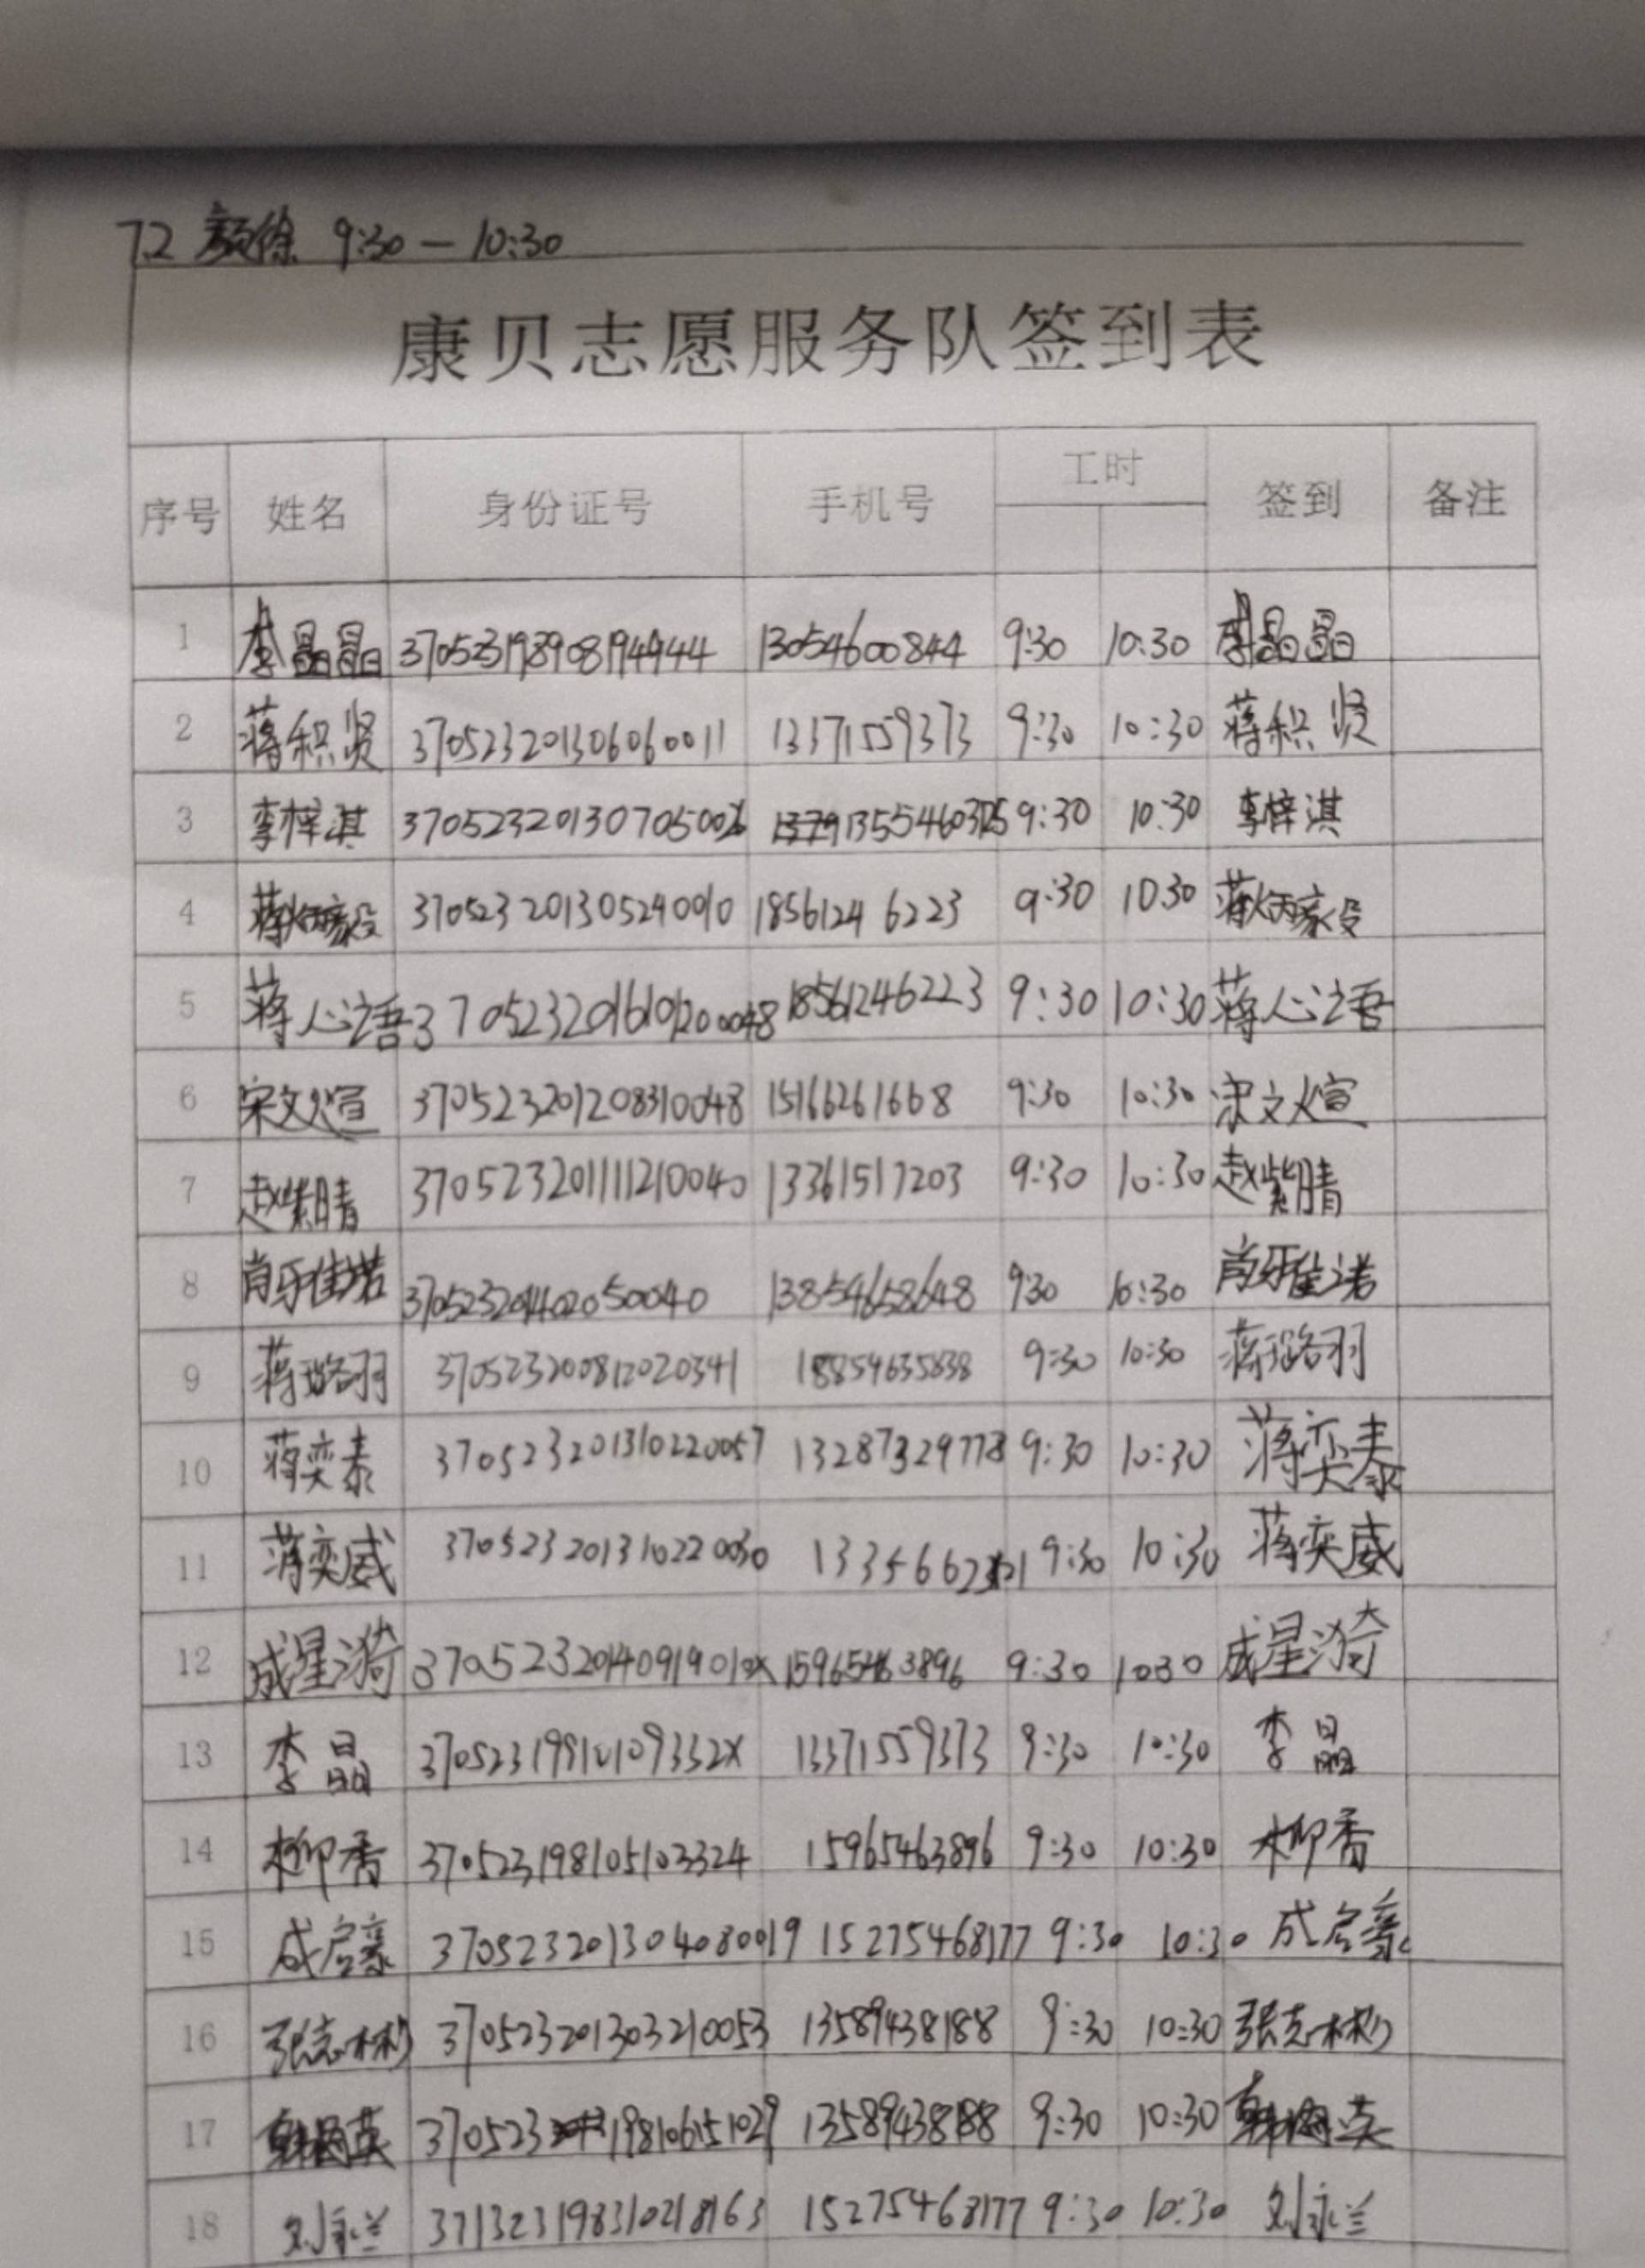 7.2 颜徐 9:30 — 10:30
康贝志愿服务队签到表
序号 姓名 身份证号 手机号 工时 签到 备注
1 李晶晶 370523198908194444 13054600844 9:30 10:30 李晶晶
2 蒋积贤 370523201306060011 13371559373 9:30 10:30 蒋积贤
3 李梓淇 9:30 10:30 李梓淇
4 370523201305240010 18561246223 9:30 10:30
5 蒋心语 370523201610120048 18561246223 9:30 10:30 蒋心语
6 宋文煊 370523201208310048 15166261668 9:30 10:30 宋文煊
7 赵紫晴 370523201111210040 13361517203 9:30 10:30 赵紫晴
8 肖雅诺 370523201402050040 13854658648 9:30 10:30 肖雅诺
9 蒋璐羽 370523200812020341 18854635838 9:30 10:30 蒋璐羽
10 蒋奕泰 370523201310220057 13287329778 9:30 10:30 蒋奕泰
11 蒋奕威 370523201310220030 9:30 10:30 蒋奕威
12 成星漪 37052320140919010X 15965463896 9:30 10:30 成星漪
13 李晶 37052319910109332X 13371559373 9:30 10:30 李晶
14 柳香 370523198105103324 15965463896 9:30 10:30 柳香
15 成启豪 370523201304080019 15275468177 9:30 10:30 成启豪
16 张志彬 370523201303210053 13589438188 9:30 10:30 张志彬
17 370523198106151029 13589438188 9:30 10:30
18 刘永兰 371323198310218163 15275468177 9:30 10:30 刘永兰